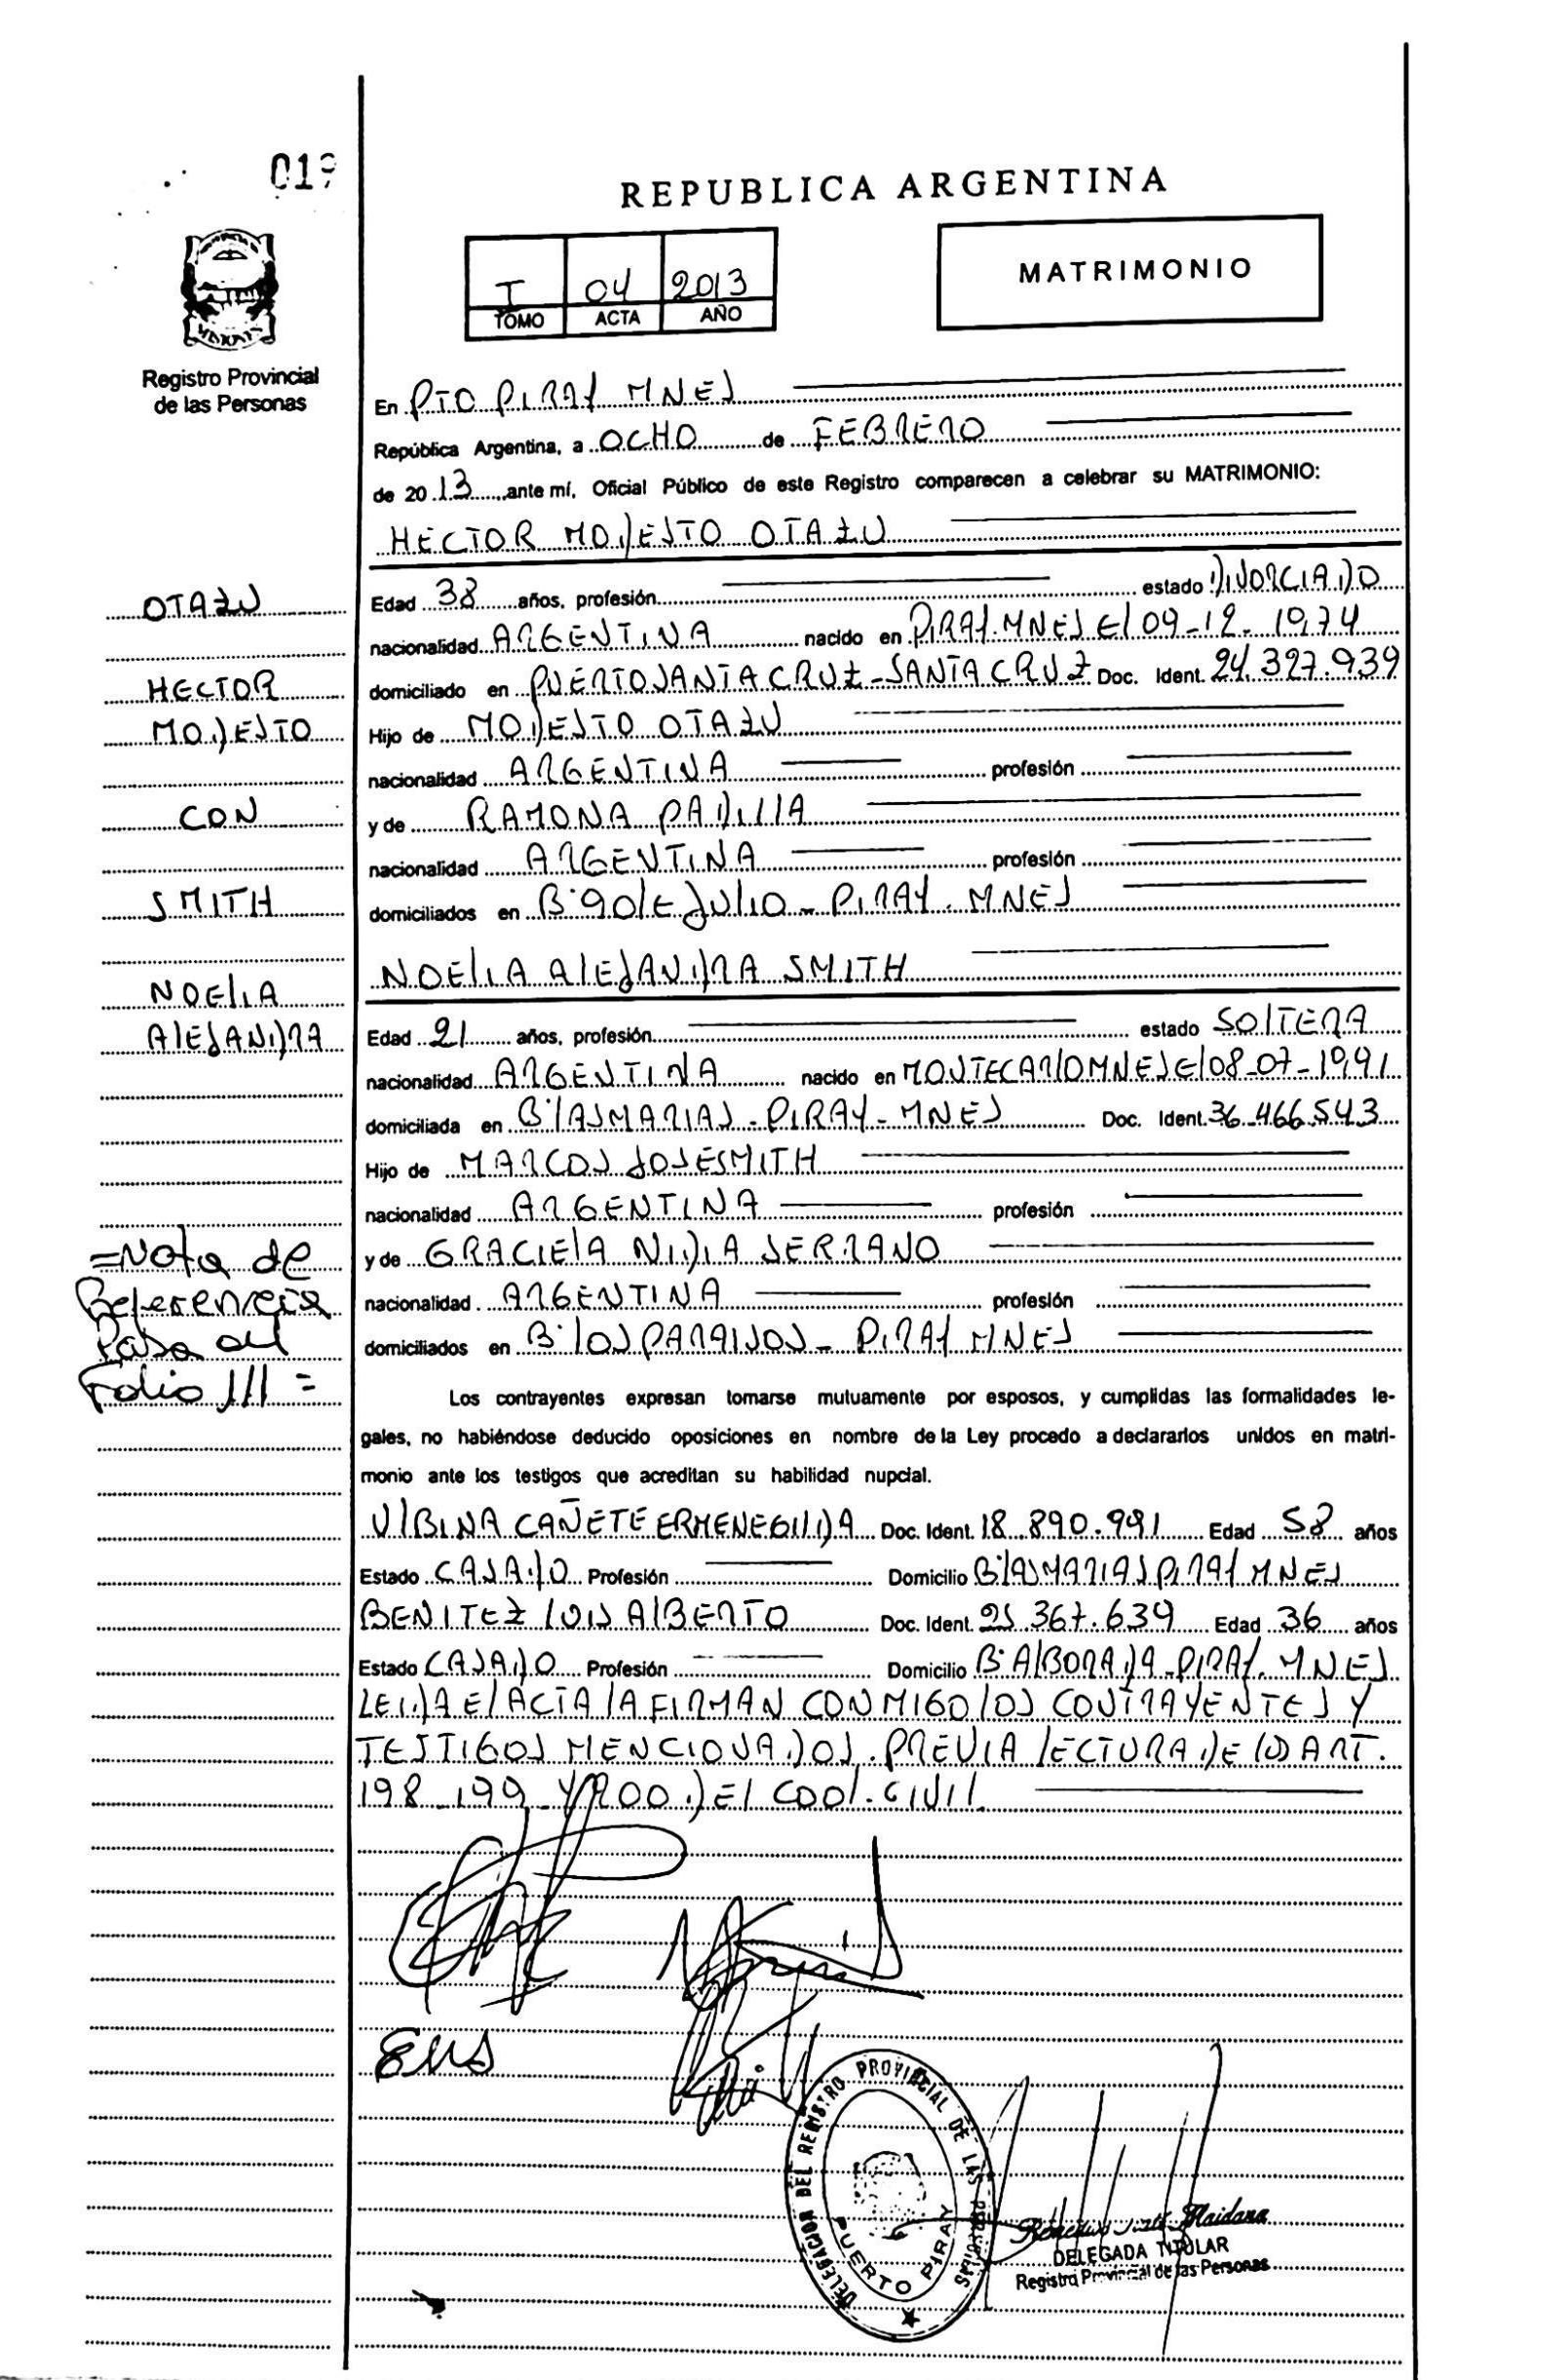 019
REPUBLICA ARGENTINA
I 04 2013
TOMO ACTA AÑO
MATRIMONIO
Registro Provincial
de las Personas
En PTO PIRAY MNES
República Argentina, a OCHO de FEBRERO
de 2013 ante mí, Oficial Público de este Registro comparecen a celebrar su MATRIMONIO:
HECTOR MODESTO OTAZU
OTAZU
HECTOR
MODESTO
CON
SMITH
NOELIA
ALEJANDRA
=Nota de
Referencia
Pasa al
Folio 111 =
Edad 38 años, profesión estado DIVORCIADO
nacionalidad ARGENTINA nacido en PIRAY-MNES El 09-12-1974
domiciliado en PUERTO SANTA CRUZ-SANTA CRUZ Doc. Ident. 24.327.939
Hijo de MODESTO OTAZU
nacionalidad ARGENTINA profesión
y de RAMONA PADILLA
nacionalidad ARGENTINA profesión
domiciliados en B° 9 DE JULIO - PIRAY - MNES
NOELIA ALEJANDRA SMITH
Edad 21 años, profesión estado SOLTERA
nacionalidad ARGENTINA nacido en MONTECARLO MNES El 08-07-1991
domiciliada en B° LAS MARIAS - PIRAY - MNES Doc. Ident. 36.466.543
Hijo de MARCOS JOSE SMITH
nacionalidad ARGENTINA profesión
y de GRACIELA NIDIA SERRANO
nacionalidad ARGENTINA profesión
domiciliados en B° LOS PARAISOS - PIRAY MNES
Los contrayentes expresan tomarse mutuamente por esposos, y cumplidas las formalidades le-
gales, no habiéndose deducido oposiciones en nombre de la Ley procedo a declararlos unidos en matri-
monio ante los testigos que acreditan su habilidad nupcial.
VLBINA CAÑETE ERMENEGILDA Doc. Ident. 18.890.991 Edad 58 años
Estado CASADO Profesión Domicilio B° LAS MARIAS PIRAY MNES
BENITEZ LUIS ALBERTO Doc. Ident. 25.367.639 Edad 36 años
Estado CASADO Profesión Domicilio B° ALBORADA - PIRAY - MNES
LEIDA EL ACTA LA FIRMAN CONMIGO LOS CONTRAYENTES Y
TESTIGOS MENCIONADOS. PREVIA LECTURA DE LOS ART.
198 - 199 - Y 200 DEL COD. CIVIL.
DELEGACION DEL REGISTRO PROVINCIAL DE LAS PERSONAS
PUERTO PIRAY
Maidana
DELEGADA TITULAR
Registro Provincial de las Personas